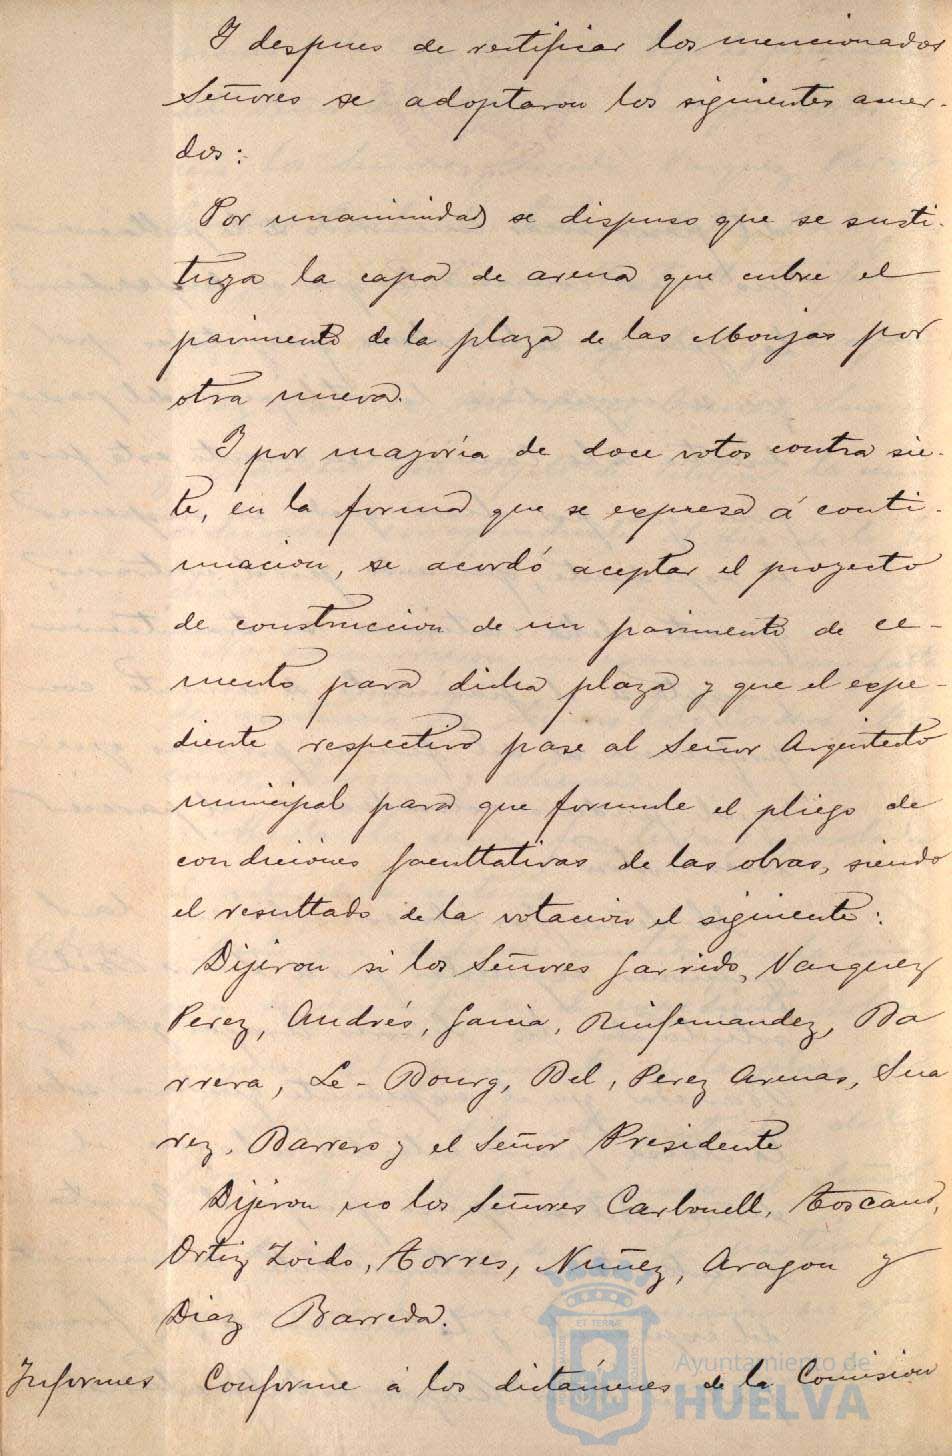 Y despues de rectificar los mencionados
Señores se adoptaron los siguientes acuer-
dos:
Por unanimidad se dispuso que se susti-
tuya la capa de arena que cubre el
pavimento de la plaza de las Monjas por
otra nueva.
Y por mayoría de doce votos contra sie-
te, en la forma que se expresa á conti-
nuacion, se acordó aceptar el proyecto
de construccion de un pavimento de ce-
mento para dicha plaza y que el expe-
diente respectivo pase al Señor Arquitecto
municipal para que formule el pliego de
condiciones facultativas de las obras, siendo
el resultado de la votacion el siguiente:
Dijeron si los Señores Garrido, Vazquez
Perez, Andrés, Garcia, Ruifernandez, Ba
rrera, Le-Bourg, Bel, Perez Arenas, Sua
rez, Barrero y el Señor Presidente
Dijeron no los Señores Carbonell, Toscano,
Ortiz Zoido, Torres, Nuñez, Aragon y
Diaz Barreda.
Informes Conforme á los dictámenes de la Comision
Ayuntamiento de
HUELVA